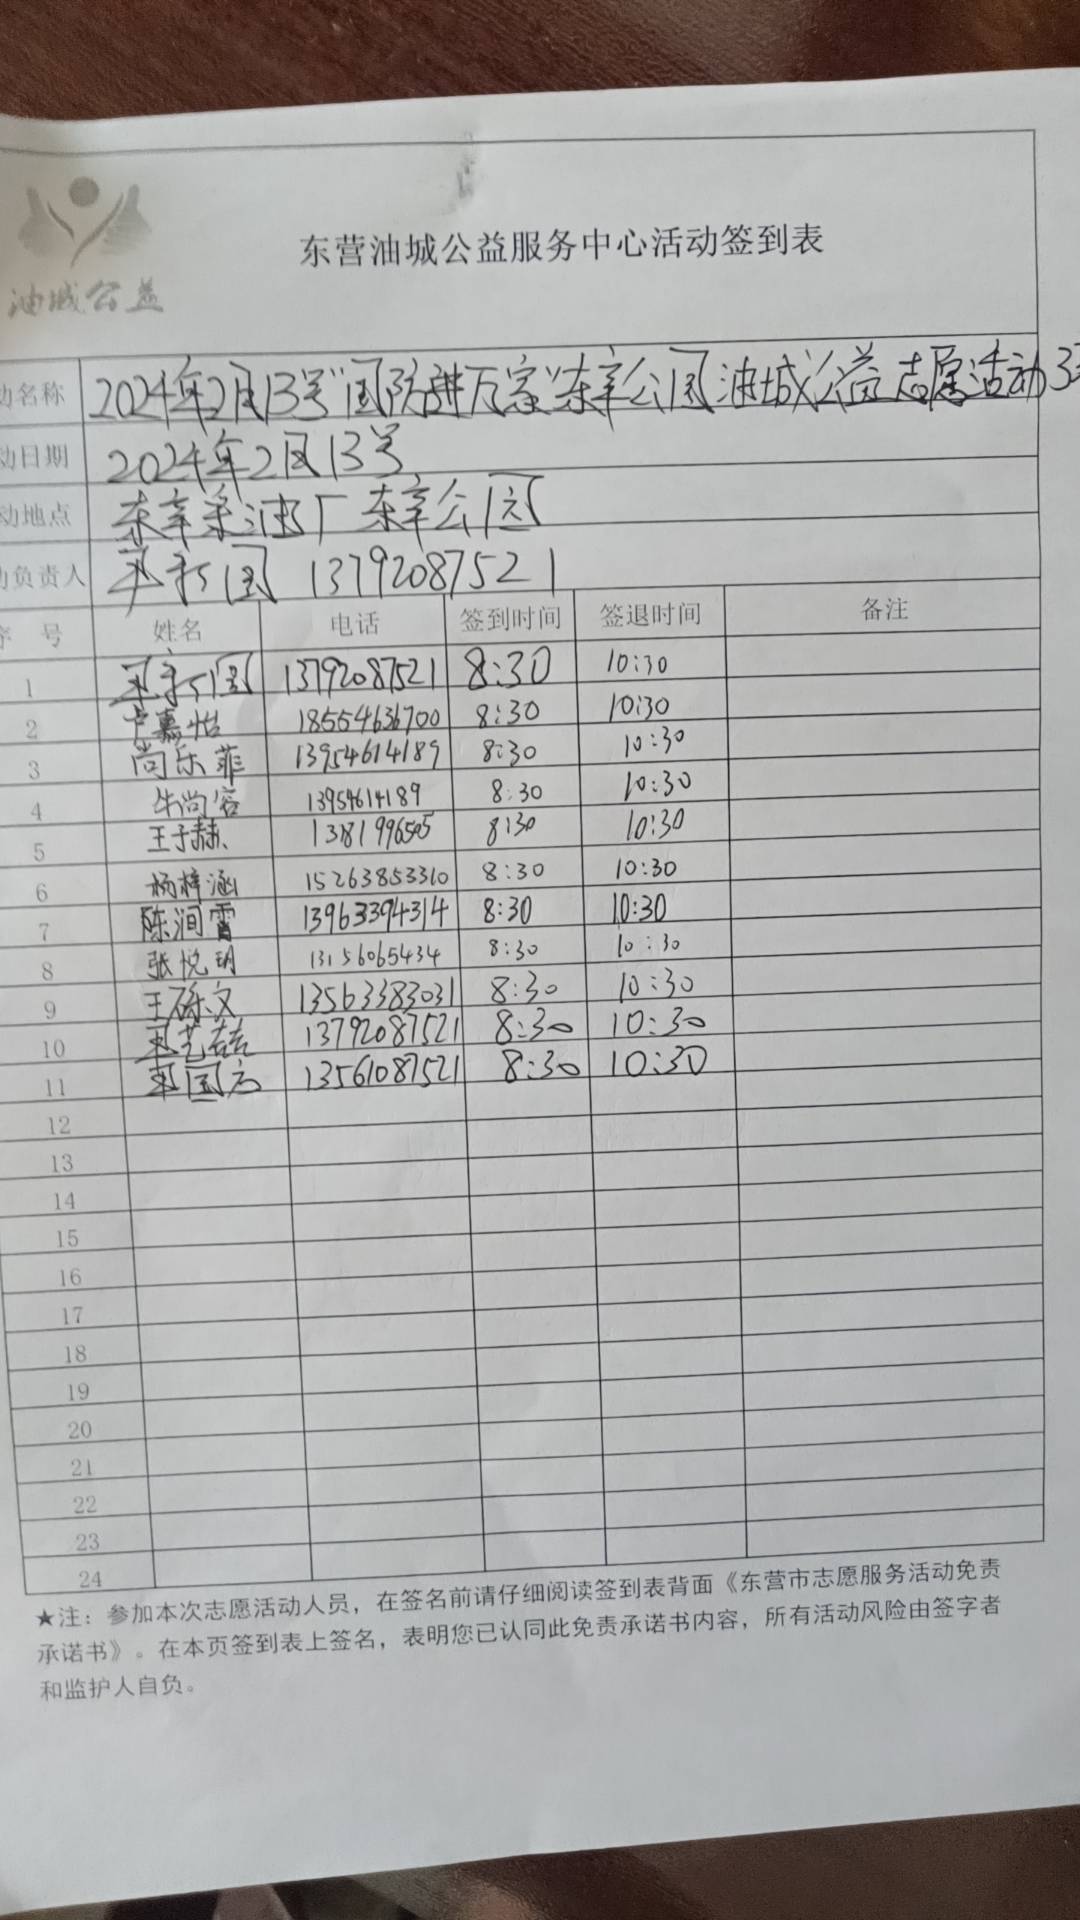 油城公益
东营油城公益服务中心活动签到表
动名称 2024年2月13号"国防进万家"东辛公园油城公益志愿活动3
动日期 2024年2月13号
动地点 东辛采油厂东辛公园
动负责人 国 13792087521
序 号 姓名 电话 签到时间 签退时间 备注
1 国 13792087521 8:30 10:30
2 卢嘉怡 18554636700 8:30 10:30
3 尚乐菲 13954614189 8:30 10:30
4 牛尚容 13954614189 8:30 10:30
5 王于赫 8:30 10:30
6 杨梓涵 15263853310 8:30 10:30
7 陈润霄 13963394314 8:30 10:30
8 张悦玥 13156065434 8:30 10:30
9 王砾文 13563383031 8:30 10:30
10 13792087521 8:30 10:30
11 13561087521 8:30 10:30
12
13
14
15
16
17
18
19
20
21
22
23
24
★注：参加本次志愿活动人员，在签名前请仔细阅读签到表背面《东营市志愿服务活动免责
承诺书》。在本页签到表上签名，表明您已认同此免责承诺书内容，所有活动风险由签字者
和监护人自负。